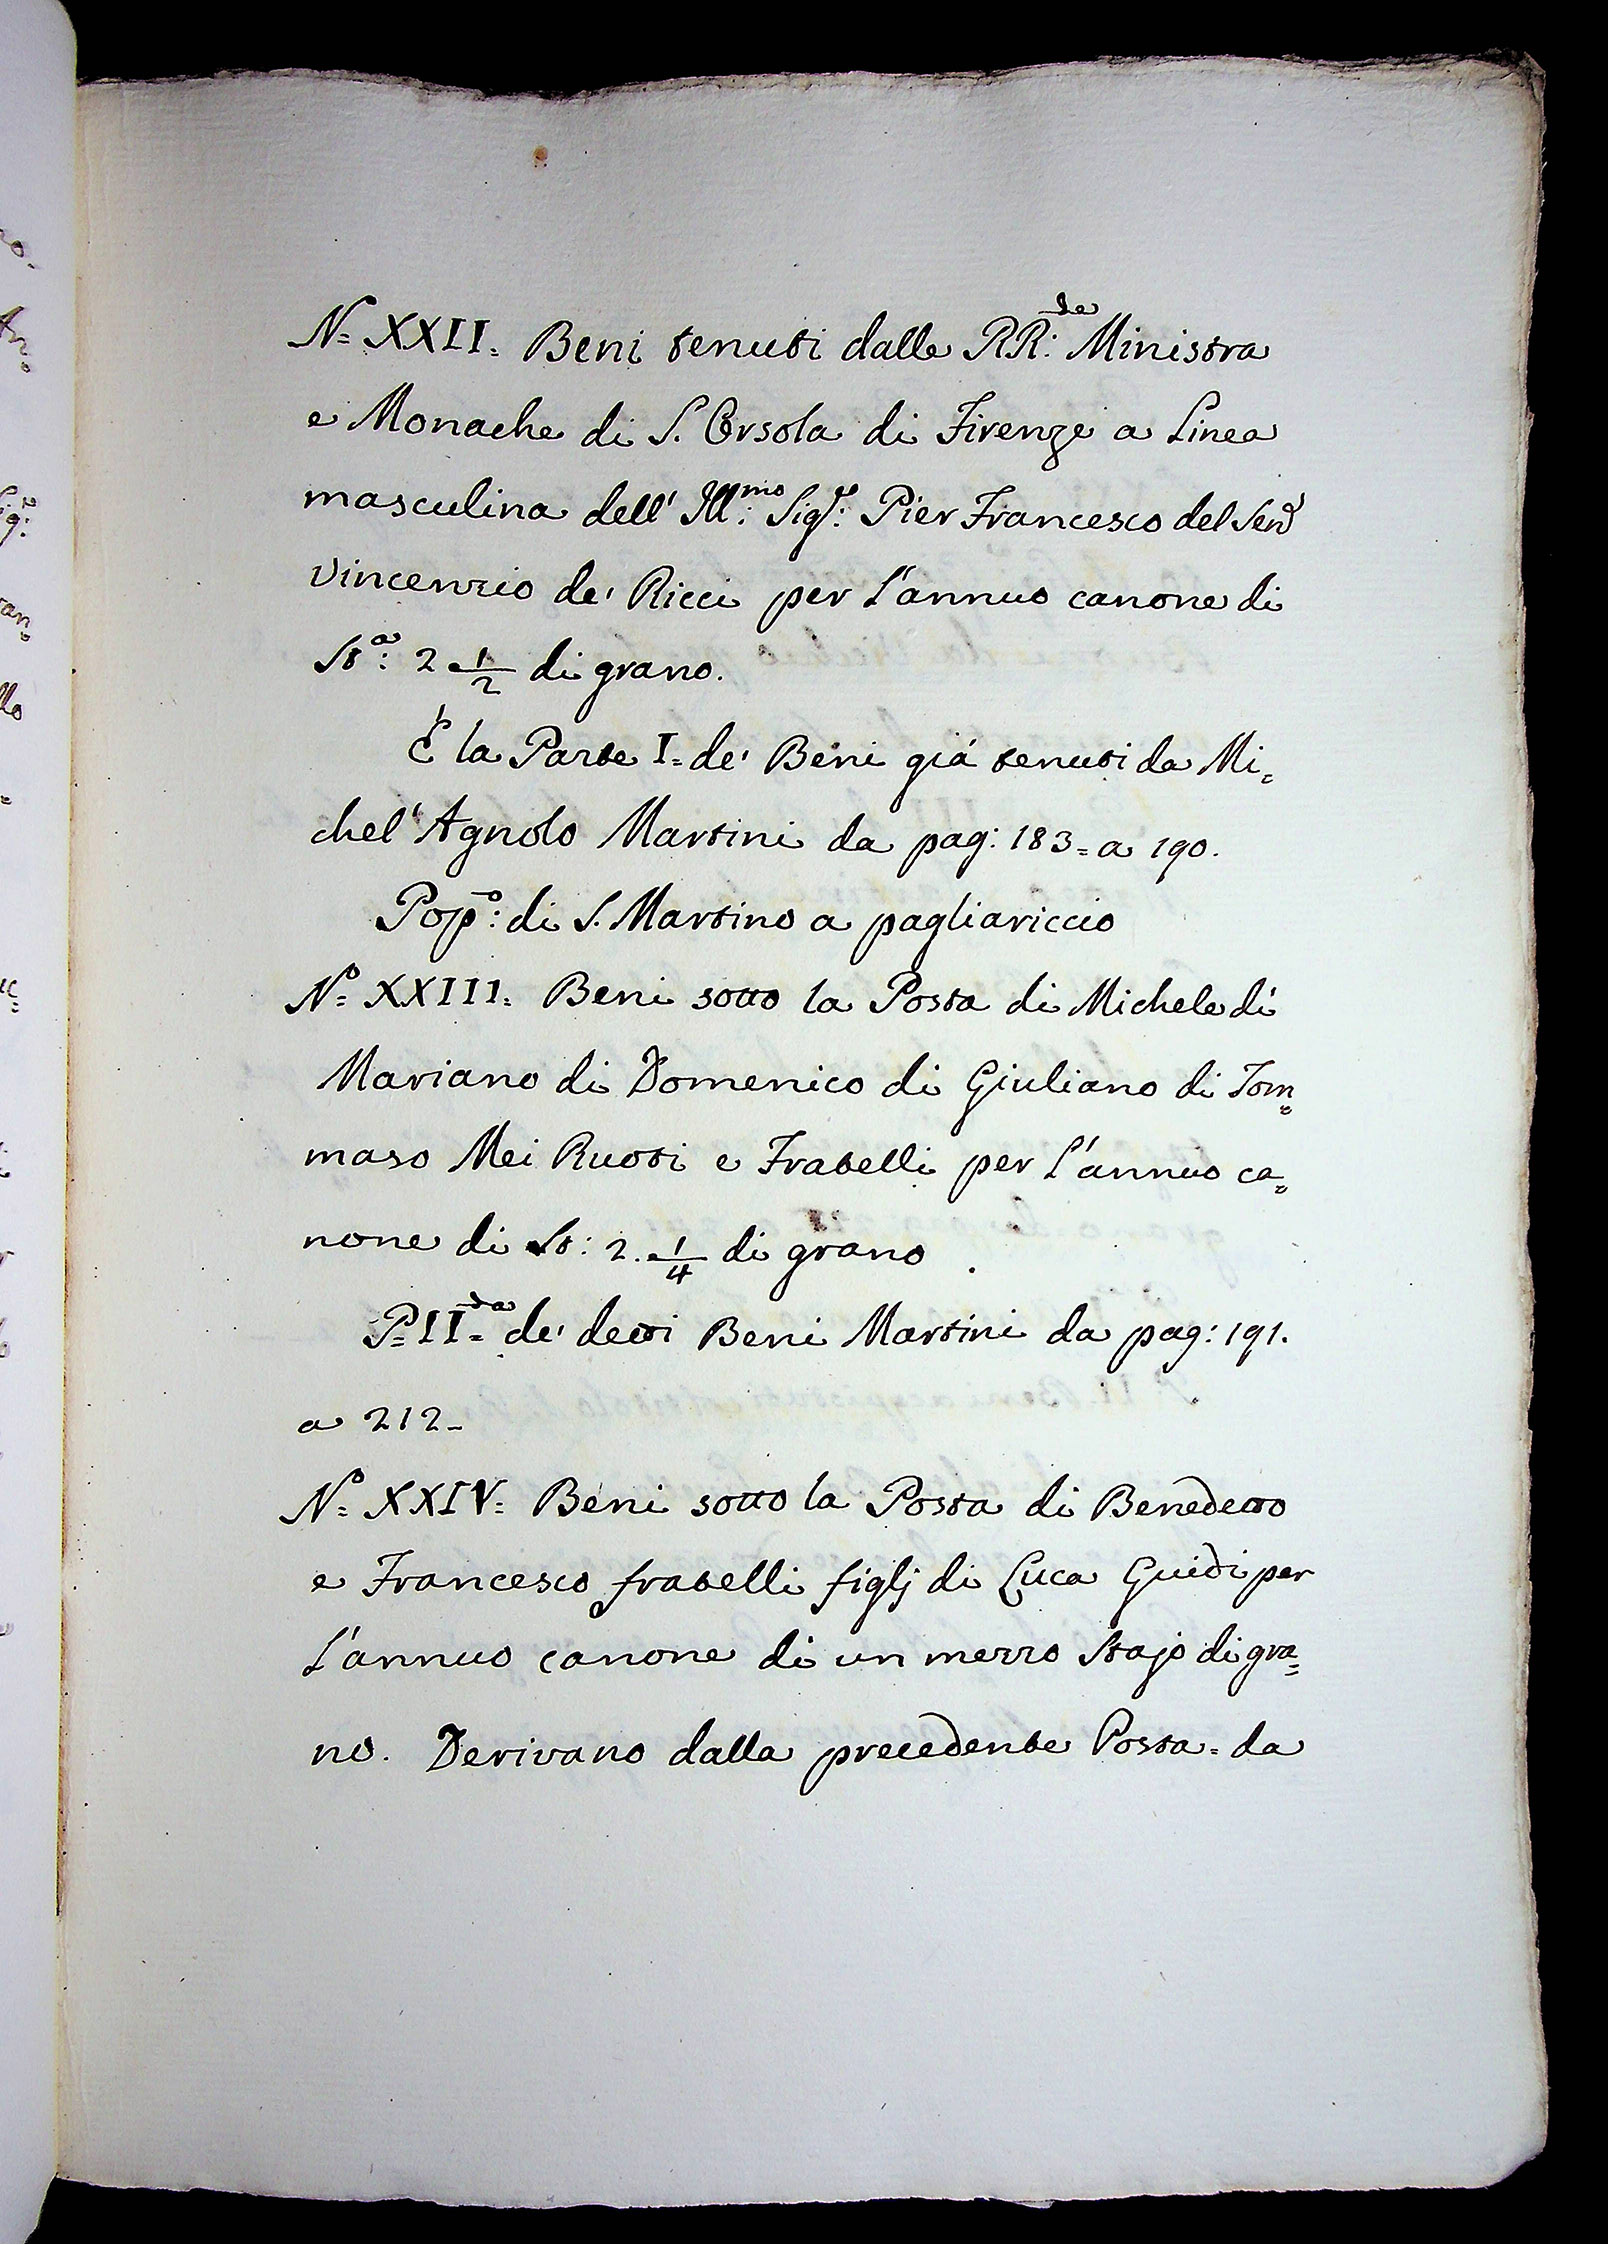 N.= XXII= Beni tenuti dalle RR:de Ministra
e Monache di S. Orsola di Firenze a Linea
masculina dell' Ill:mo Sigr: Pier Francesco del Send
Vincenzio de' Ricci per l'annuo canone di
Sta: 2 1/2 di grano.
È la Parte I= de' Beni giá tenuti da Mi=
chel'Agnolo Martini da pag: 183= a 190.
Popo: di S. Martino a pagliariccio
No= XXIII= Beni sotto la Posta di Michele di
Mariano di Domenico di Giuliano di Tom=
maso Mei Ruoti e Fratelli per l'annuo ca=
none di St: 2. 1/4 di grano.
P= II=da de' detti Beni Martini da pag: 191.
a 212-
No= XXIV= Beni sotto la Posta di Benedetto
e Francesco fratelli figlj di Luca Guidi per
l'annuo canone di un mezzo Stajo di gra=
no. Derivano dalla precedente Posta= da